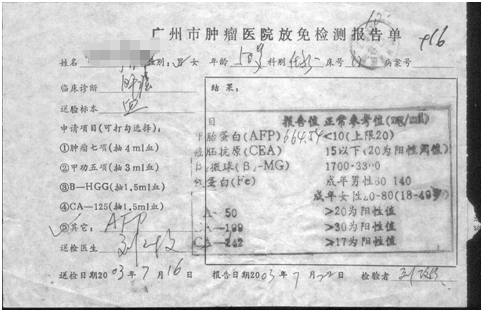 广州市肿瘤医院放免检测报告单
姓名 性别:男 女 年龄 科别 床号 病案号
临床诊断 肝癌
送检标本 血
申请项目(可打勾选择):
①肿瘤七项(抽4ml血)
②甲功五项(抽3ml血)
③B—HGG(抽1,5ml血)
④CA—125(抽1,5ml血)
⑤其它: AFP
送检医生
送检日期2003年7月16日
结果:
目 报告值 正常参考值(ng/ml)
胎蛋白(AFP) <10(上限20)
胚抗原(CEA) 15以下(20为阳性阈值)
微球(β₂-MG) 1700-3300
铁蛋白(Fe) 成年男性30 140
成年女性20-80(18-49岁)
A- 50 >20为阳性值
-199 >30为阳性值
CA-242 ≥17为阳性值
报告日期2003年7月22日 检验者